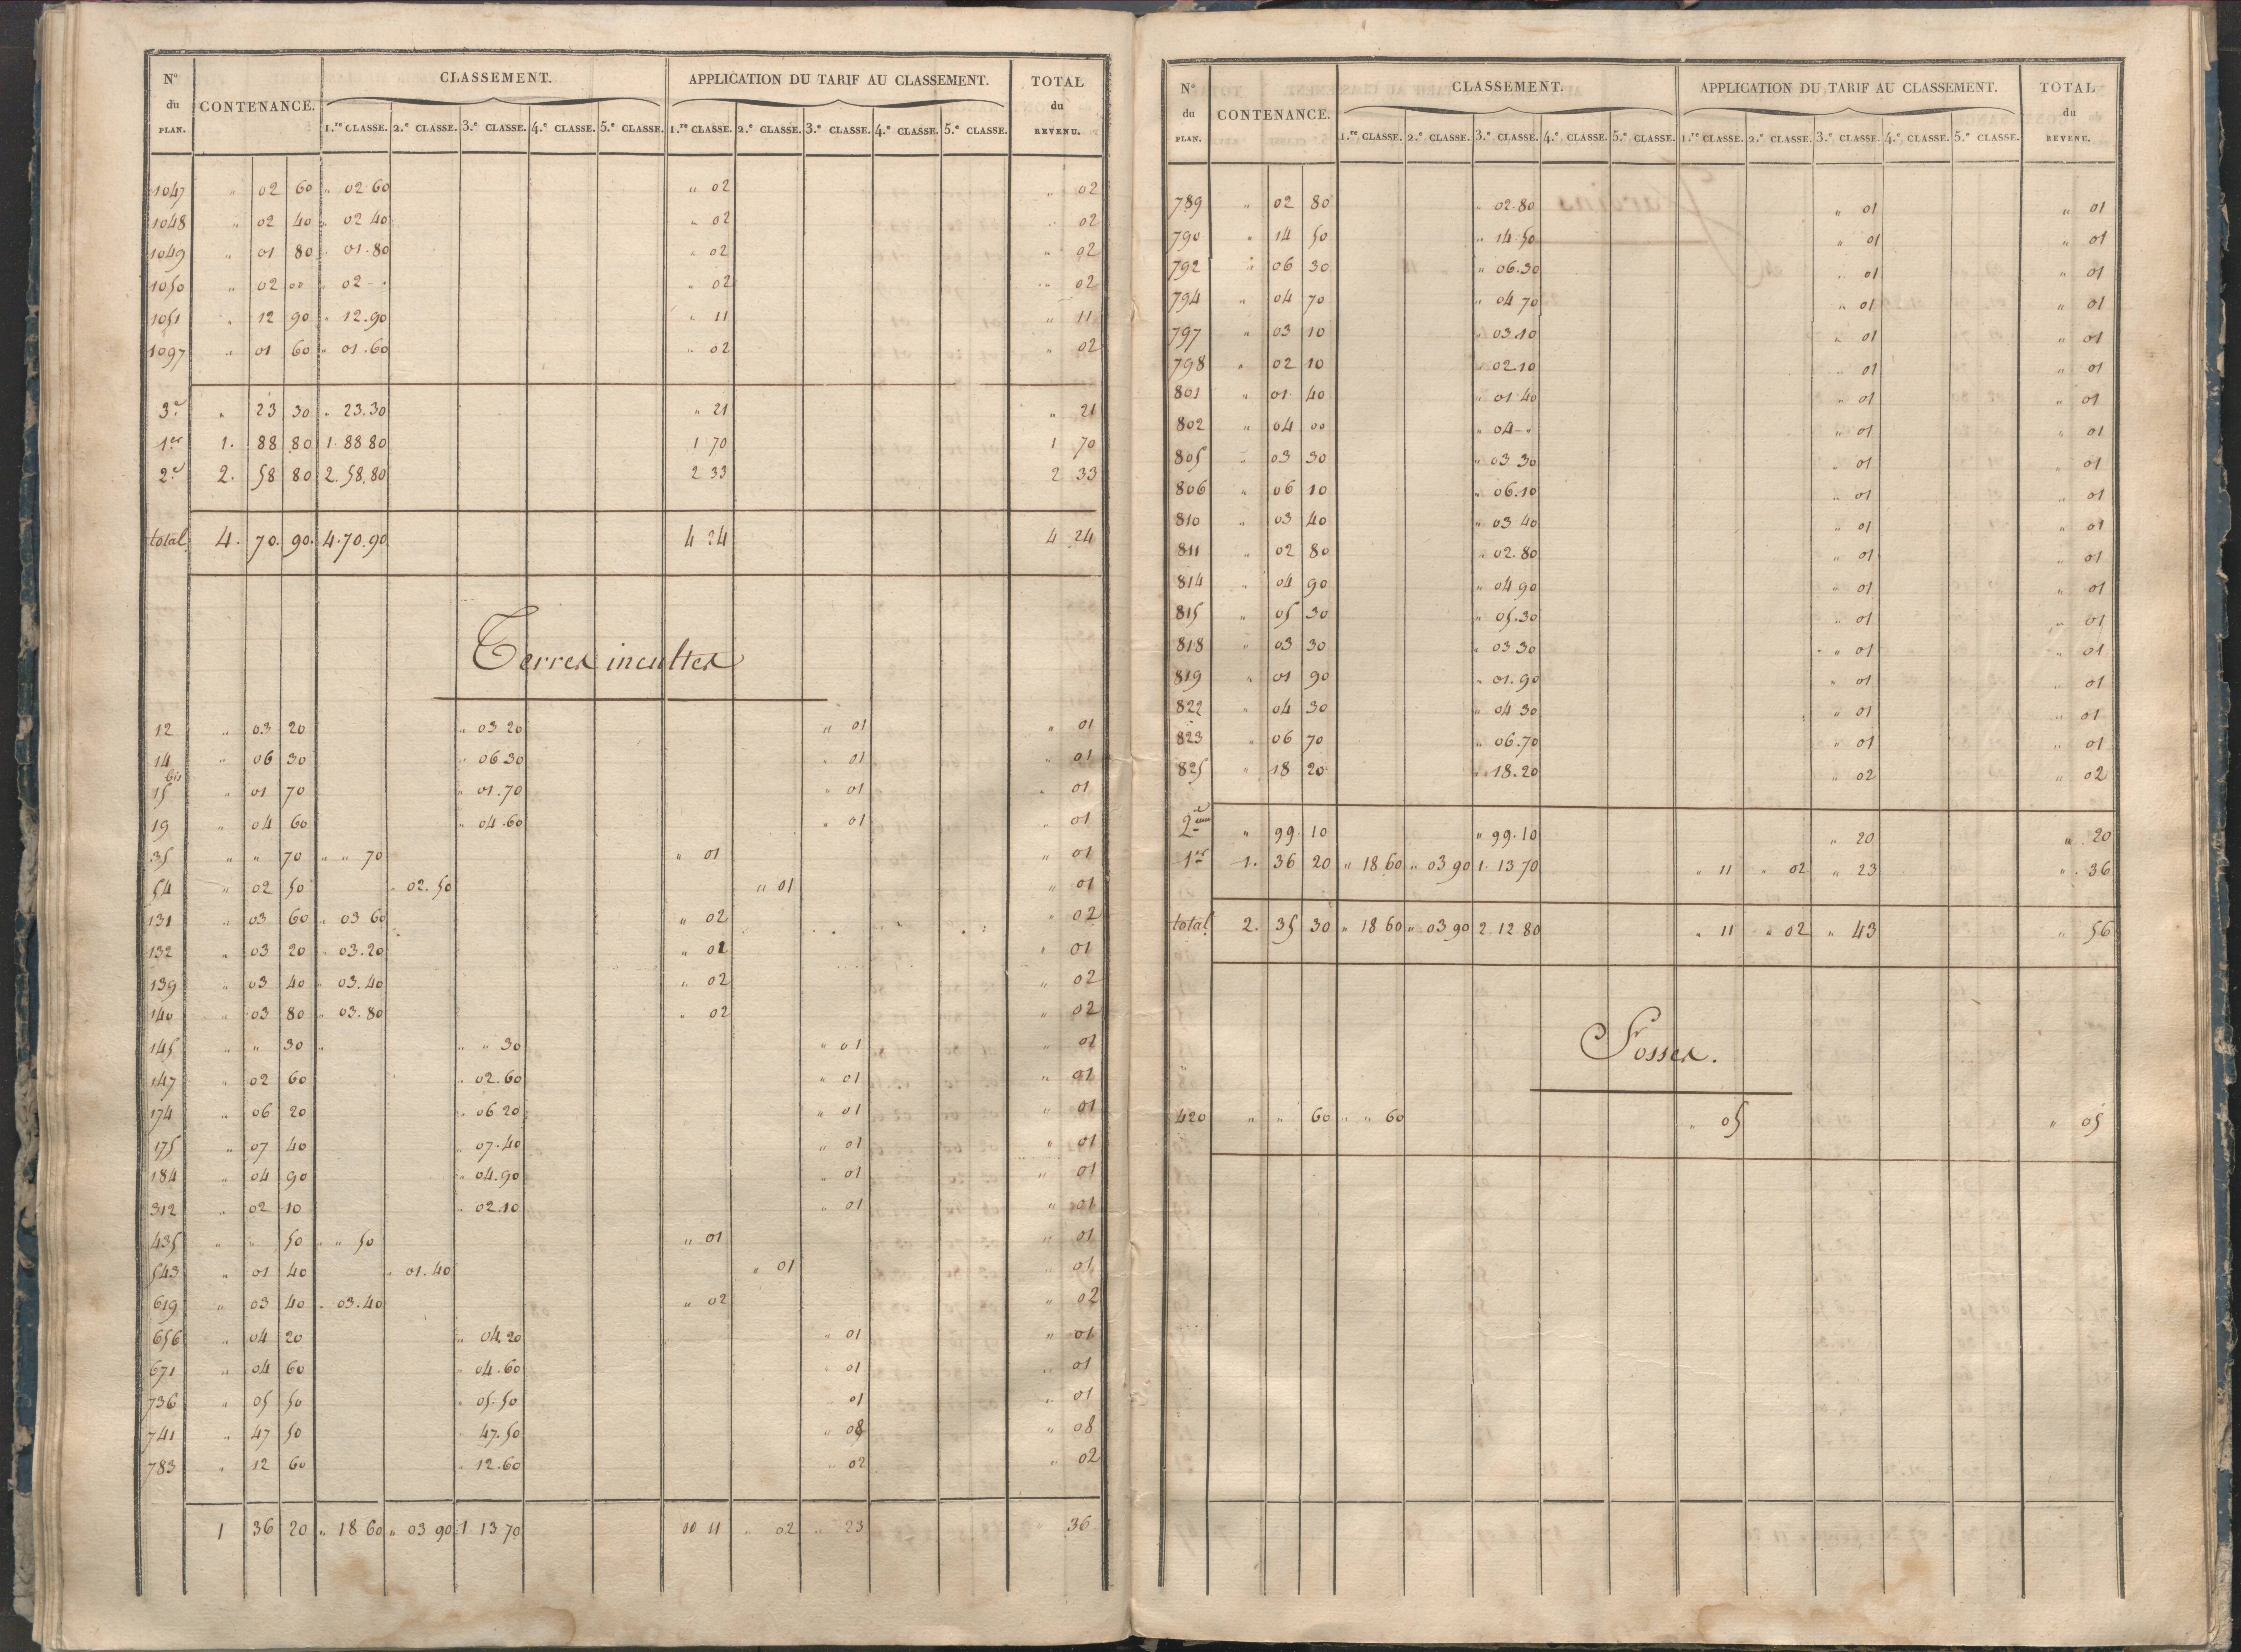 N° du PLAN. CONTENANCE. CLASSEMENT. APPLICATION DU TARIF AU CLASSEMENT. TOTAL du REVENU.
1.re CLASSE. 2.e CLASSE. 3.e CLASSE. 4.e CLASSE. 5.e CLASSE. 1.re CLASSE. 2.e CLASSE. 3.e CLASSE. 4.e CLASSE. 5.e CLASSE.
1047 " 02 60 " 02 60 " 02 " 02
1048 " 02 40 " 02 40 " 02 " 02
1049 " 01 80 " 01.80 " 02 " 02
1050 " 02 00 " 02 - " " 02 " 02
1051 " 12 90 " 12.90 " 11 " 11
1097 " 01 60 " 01.60 " 02 " 02
3e " 23 30 " 23.30 " 21 " 21
1er 1. 88 80 1 88 80 1 70 1 70
2e 2. 58 80 2.58.80 2 33 2 33
total 4. 70. 90. 4.70.90 4 24 4 24
Terres incultes
12 " 03 20 " 03 20 " 01 " 01
14 " 06 30 " 06 30 " 01 " 01
15 bis " 01 70 " 01.70 " 01 " 01
19 " 04 60 " 04.60 " 01 " 01
35 " " 70 " " 70 " 01 " 01
54 " 02 50 " 02.50 " 01 " 01
131 " 03 60 " 03 60 " 02 " 02
132 " 03 20 " 03.20 " 01 " 01
139 " 03 40 " 03.40 " 02 " 02
140 " 03 80 " 03.80 " 02 " 02
145 " " 30 " " " 30 " 01 " 01
147 " 02 60 " 02.60 " 01 " 01
174 " 06 20 " 06 20 " 01 " 01
175 " 07 40 " 07.40 " 01 " 01
184 " 04 90 " 04.90 " 01 " 01
312 " 02 10 " 02.10 " 01 " 01
435 " " 50 " " 50 " 01 " 01
543 " 01 40 " 01.40 " 01 " 01
619 " 03 40 " 03.40 " 02 " 02
656 " 04 20 " 04.20 " 01 " 01
671 " 04 60 " 04.60 " 01 " 01
736 " 05 50 " 05.50 " 01 " 01
741 " 47 50 " 47.50 " 08 " 08
783 " 12 60 " 12.60 " 02 " 02
1 36 20 " 18 60 " 03 90 1 13 70 11 " 02 " 23 36
N° du PLAN. CONTENANCE. CLASSEMENT. APPLICATION DU TARIF AU CLASSEMENT. TOTAL du REVENU.
1.re CLASSE. 2.e CLASSE. 3.e CLASSE. 4.e CLASSE. 5.e CLASSE. 1.re CLASSE. 2.e CLASSE. 3.e CLASSE. 4.e CLASSE. 5.e CLASSE.
789 " 02 80 " 02.80 " 01 " 01
790 " 14 50 " 14.50 " 01 " 01
792 " 06 30 " 06.30 " 01 " 01
794 " 04 70 " 04 70 " 01 " 01
797 " 03 10 " 03.10 " 01 " 01
798 " 02 10 " 02.10 " 01 " 01
801 " 01 40 " 01 40 " 01 " 01
802 " 04 00 " 04 - " " 01 " 01
805 " 03 30 " 03 30 " 01 " 01
806 " 06 10 " 06.10 " 01 " 01
810 " 03 40 " 03 40 " 01 " 01
811 " 02 80 " 02.80 " 01 " 01
814 " 04 90 " 04 90 " 01 " 01
815 " 05 30 " 05.30 " 01 " 01
818 " 03 30 " 03 30 " 01 " 01
819 " 01 90 " 01.90 " 01 " 01
822 " 04 30 " 04 30 " 01 " 01
823 " 06 70 " 06.70 " 01 " 01
825 " 18 20 " 18.20 " 02 " 02
2eme " 99. 10 " 99.10 " 20 " 20
1er 1. 36 20 " 18 60 " 03 90 1. 13 70 " 11 " 02 " 23 " 36
total 2. 35 30 " 18 60 " 03 90 2 12 80 " 11 " 02 " 43 " 56
Fosses.
420 " " 60 " " 60 " 05 " 05